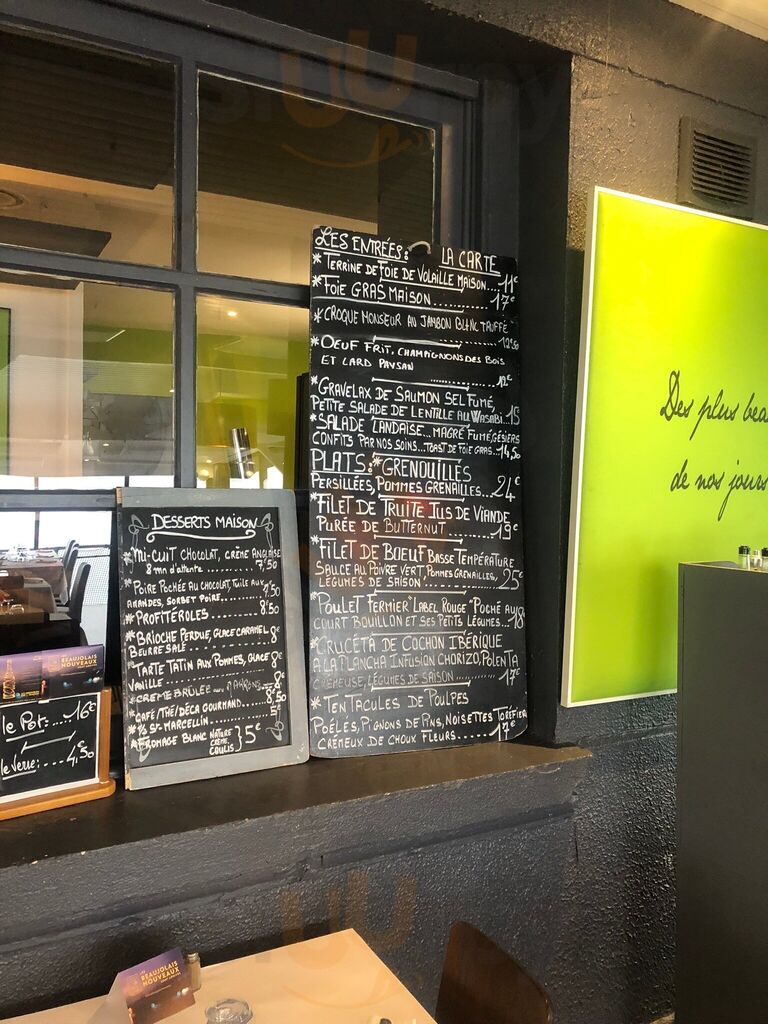 LES ENTRÉES: LA CARTE
* TERRINE DE FOIE DE VOLAILLE MAISON.... 11€
* FOIE GRAS MAISON.......... 17€
* CROQUE MONSEUR AU JAMBON BLANC TRUFFÉ
........ 12,50
* OEUF FRIT, CHAMPIGNONS DES BOIS
ET LARD PAYSAN
.......... 12€
* GRAVELAX DE SAUMON SEL FUMÉ,
PETITE SALADE DE LENTILLE AU WASABI.. 15€
* SALADE LANDAISE... MAGRÉ FUMÉ, GÉSIERS
CONFITS PAR NOS SOINS... TOAST DE FOIE GRAS.. 14,50
PLATS: * GRENOUILLES
PERSILLÉES, POMMES GRENAILLES... 24€
* FILET DE TRUITE JUS DE VIANDE
PURÉE DE BUTTERNUT ........ 19€
* FILET DE BOEUF BASSE TEMPÉRATURE
SAUCE AU POIVRE VERT POMMES GRENAILLES,
LÉGUMES DE SAISON ............. 25€
* POULET FERMIER "LABEL ROUGE" POCHÉ AU
COURT BOUILLON ET SES PETITS LÉGUMES.... 18€
* CRUCÉTA DE COCHON IBÉRIQUE
A LA PLANCHA INFUSION CHORIZO, POLENTA
CRÉMEUSE, LÉGUMES DE SAISON ....... 17€
* TENTACULES DE POULPES
POÊLÉS, PIGNONS DE PINS, NOISETTES TORÉFIER
CRÉMEUX DE CHOUX FLEURS...... 17€
DESSERTS MAISON
* MI-CUIT CHOCOLAT, CRÈME ANGLAISE
8 mn d'attente......... 7,50
* POIRE POCHÉE AU CHOCOLAT, TUILE AUX
AMANDES, SORBET POIRE........ 9,50
* PROFITÉROLES ........... 8,50
* BRIOCHE PERDUE, GLACE CARAMEL
BEURRE SALÉ ............... 8€
* TARTE TATIN AUX POMMES, GLACE
VANILLE ............... 8€
* CREME BRÛLÉE
* CAFÉ/THÉ/DÉCA GOURMAND....
* ½ ST-MARCELLIN ..........
* FROMAGE BLANC NATURE
CRÈME
COULIS } 5€
BEAUJOLAIS
NOUVEAUX
le Pot:...16€
le verre:....4,50
Des plus bea
de nos jours
LES
BEAUJOLAIS
NOUVEAUX